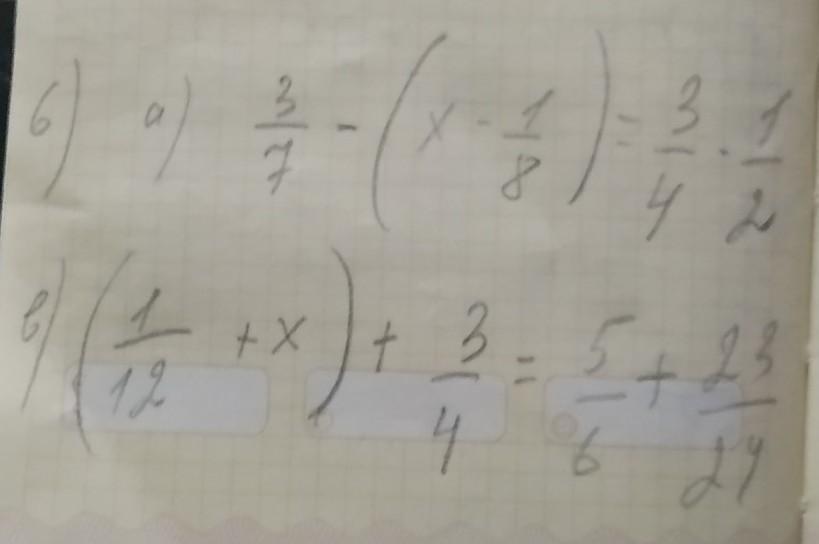 6) а) 3/7 - (x - 1/8) = 3/4 · 1/2
в) (1/12 + x) + 3/4 = 5/6 + 23/24